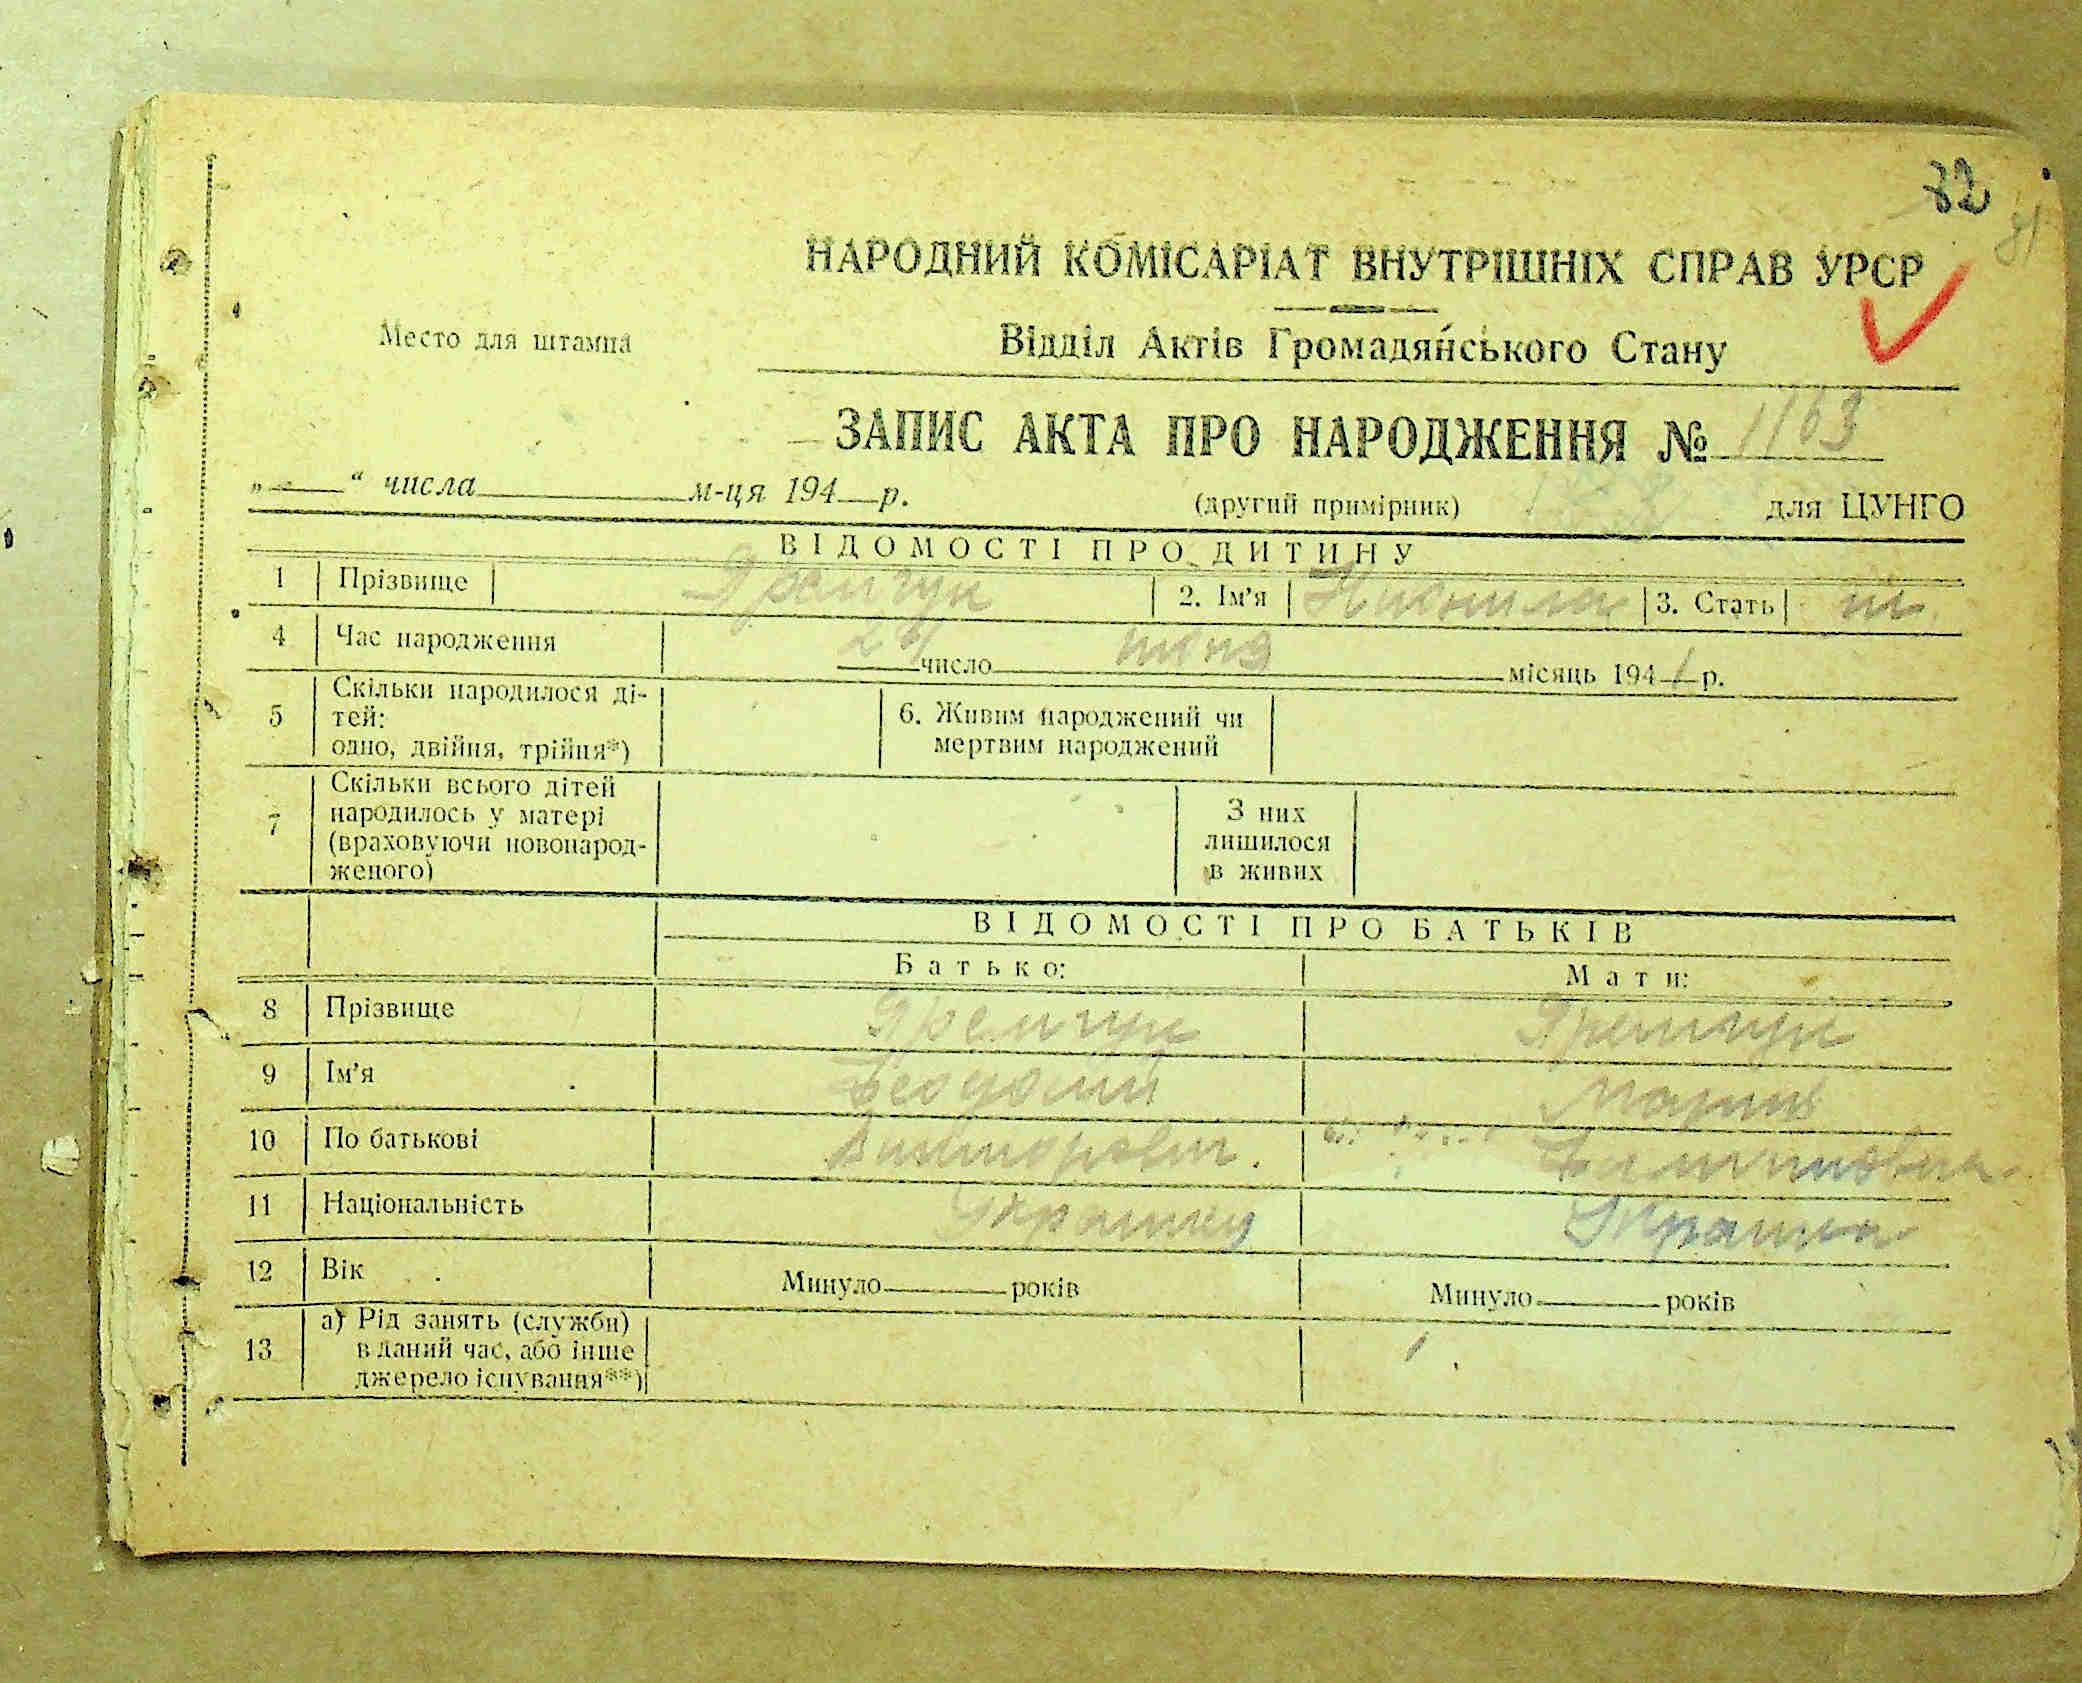 72
НАРОДНИЙ КОМІСАРІАТ ВНУТРІШНІХ СПРАВ УРСР
Место для штампа
Відділ Актів Громадянського Стану
ЗАПИС АКТА ПРО НАРОДЖЕННЯ № 1163
„ “ числа м-ця 194 р.
(другий примірник) для ЦУНГО
ВІДОМОСТІ ПРО ДИТИНУ
1 Прізвище Яремчук 2. Ім'я 3. Стать
4 Час народження число июня місяць 1941 р.
5 Скільки народилося ді-
тей:
одно, двійня, трійня*)
6. Живим народжений чи
мертвим народжений
7 Скільки всього дітей
народилось у матері
(враховуючи новонарод-
женого)
З них
лишилося
в живих
ВІДОМОСТІ ПРО БАТЬКІВ
Батько: Мати:
8 Прізвище Яремчук Яремчук
9 Ім'я
10 По батькові Викторович
11 Національність Украинец
12 Вік Минуло років Минуло років
13 а) Рід занять (служби)
в даний час, або інше
джерело існування**)